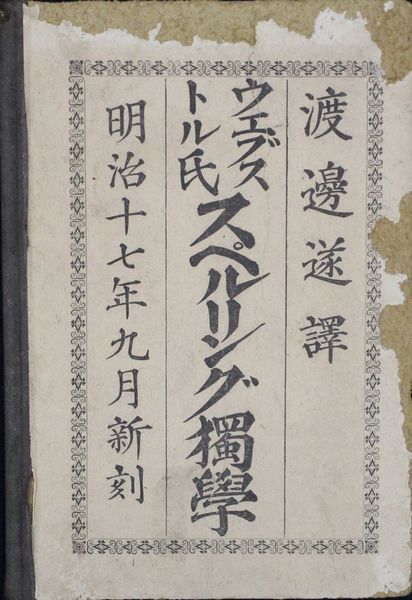 渡邊遂譯
ウヱブストル氏スペルリング獨學
明治十七年九月新刻